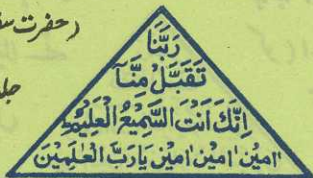 (حضرت
رَبَّنَا
تَقَبَّلْ مِنَّا
اِنَّكَ اَنْتَ السَّمِيْعُ الْعَلِيْمُ
اٰمين اٰمين اٰمين يَارَبَّ الْعٰلَمِيْنَ